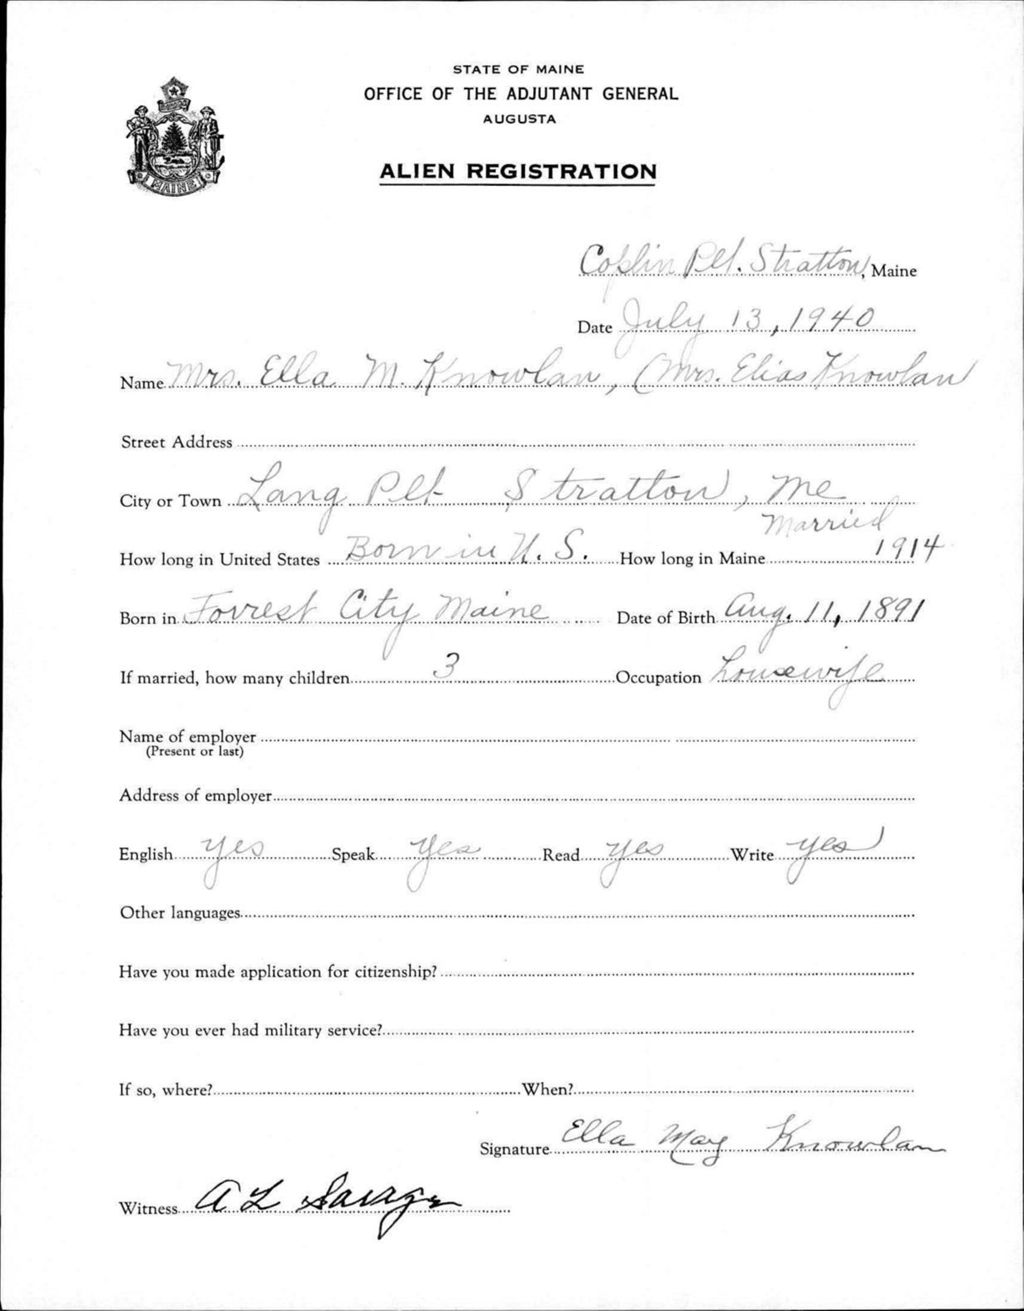 STATE OF MAINE
OFFICE OF THE ADJUTANT GENERAL
AUGUSTA
ALIEN REGISTRATION
MAINE
Coplin Plt. Stratton, Maine
Date July 13, 1940
Name Mrs. Ella M. Knowlan, (Mrs. Elias Knowlan
Street Address
City or Town Lang Plt Stratton, Me
Married
How long in United States Born in U. S. How long in Maine 1914
Born in Forrest City Maine Date of Birth Aug. 11, 1891
If married, how many children 3 Occupation housewife
Name of employer
(Present or last)
Address of employer
English yes Speak yes Read yes Write yes
Other languages
Have you made application for citizenship?
Have you ever had military service?
If so, where? When?
Signature Ella May Knowlan
Witness A L Savage